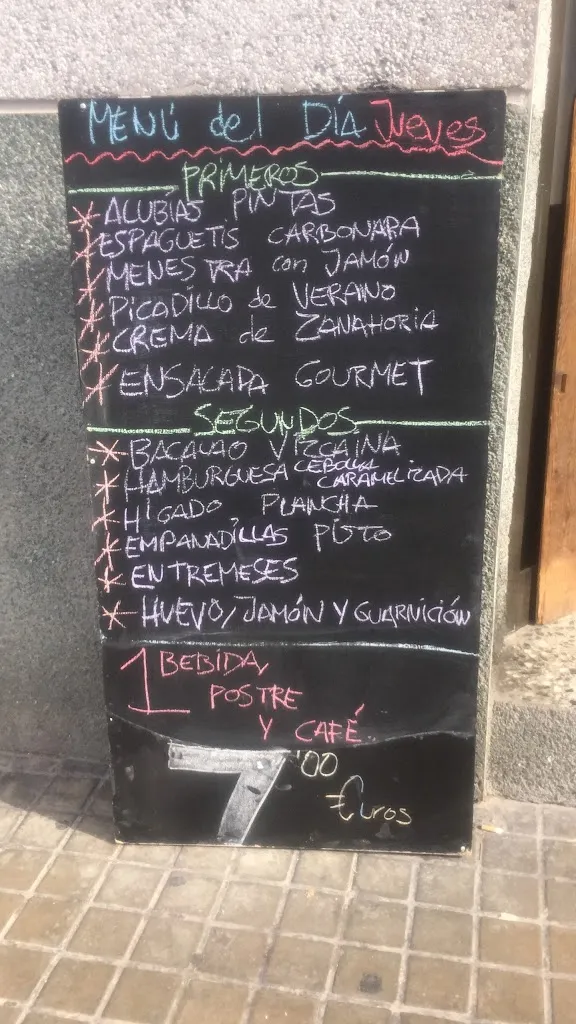 MENÚ del DÍA Jueves
PRIMEROS
* ALUBIAS PINTAS
* ESPAGUETIS CARBONARA
* MENESTRA con JAMÓN
* PICADILLO de VERANO
* CREMA de ZANAHORIA
* ENSALADA GOURMET
SEGUNDOS
* BACALAO VIZCAINA
* HAMBURGUESA CEBOLLA CARAMELIZADA
* HÍGADO PLANCHA
* EMPANADILLAS PISTO
* ENTREMESES
* HUEVO/JAMÓN Y GUARNICIÓN
1 BEBIDA,
POSTRE
Y CAFÉ
7'00
€uros